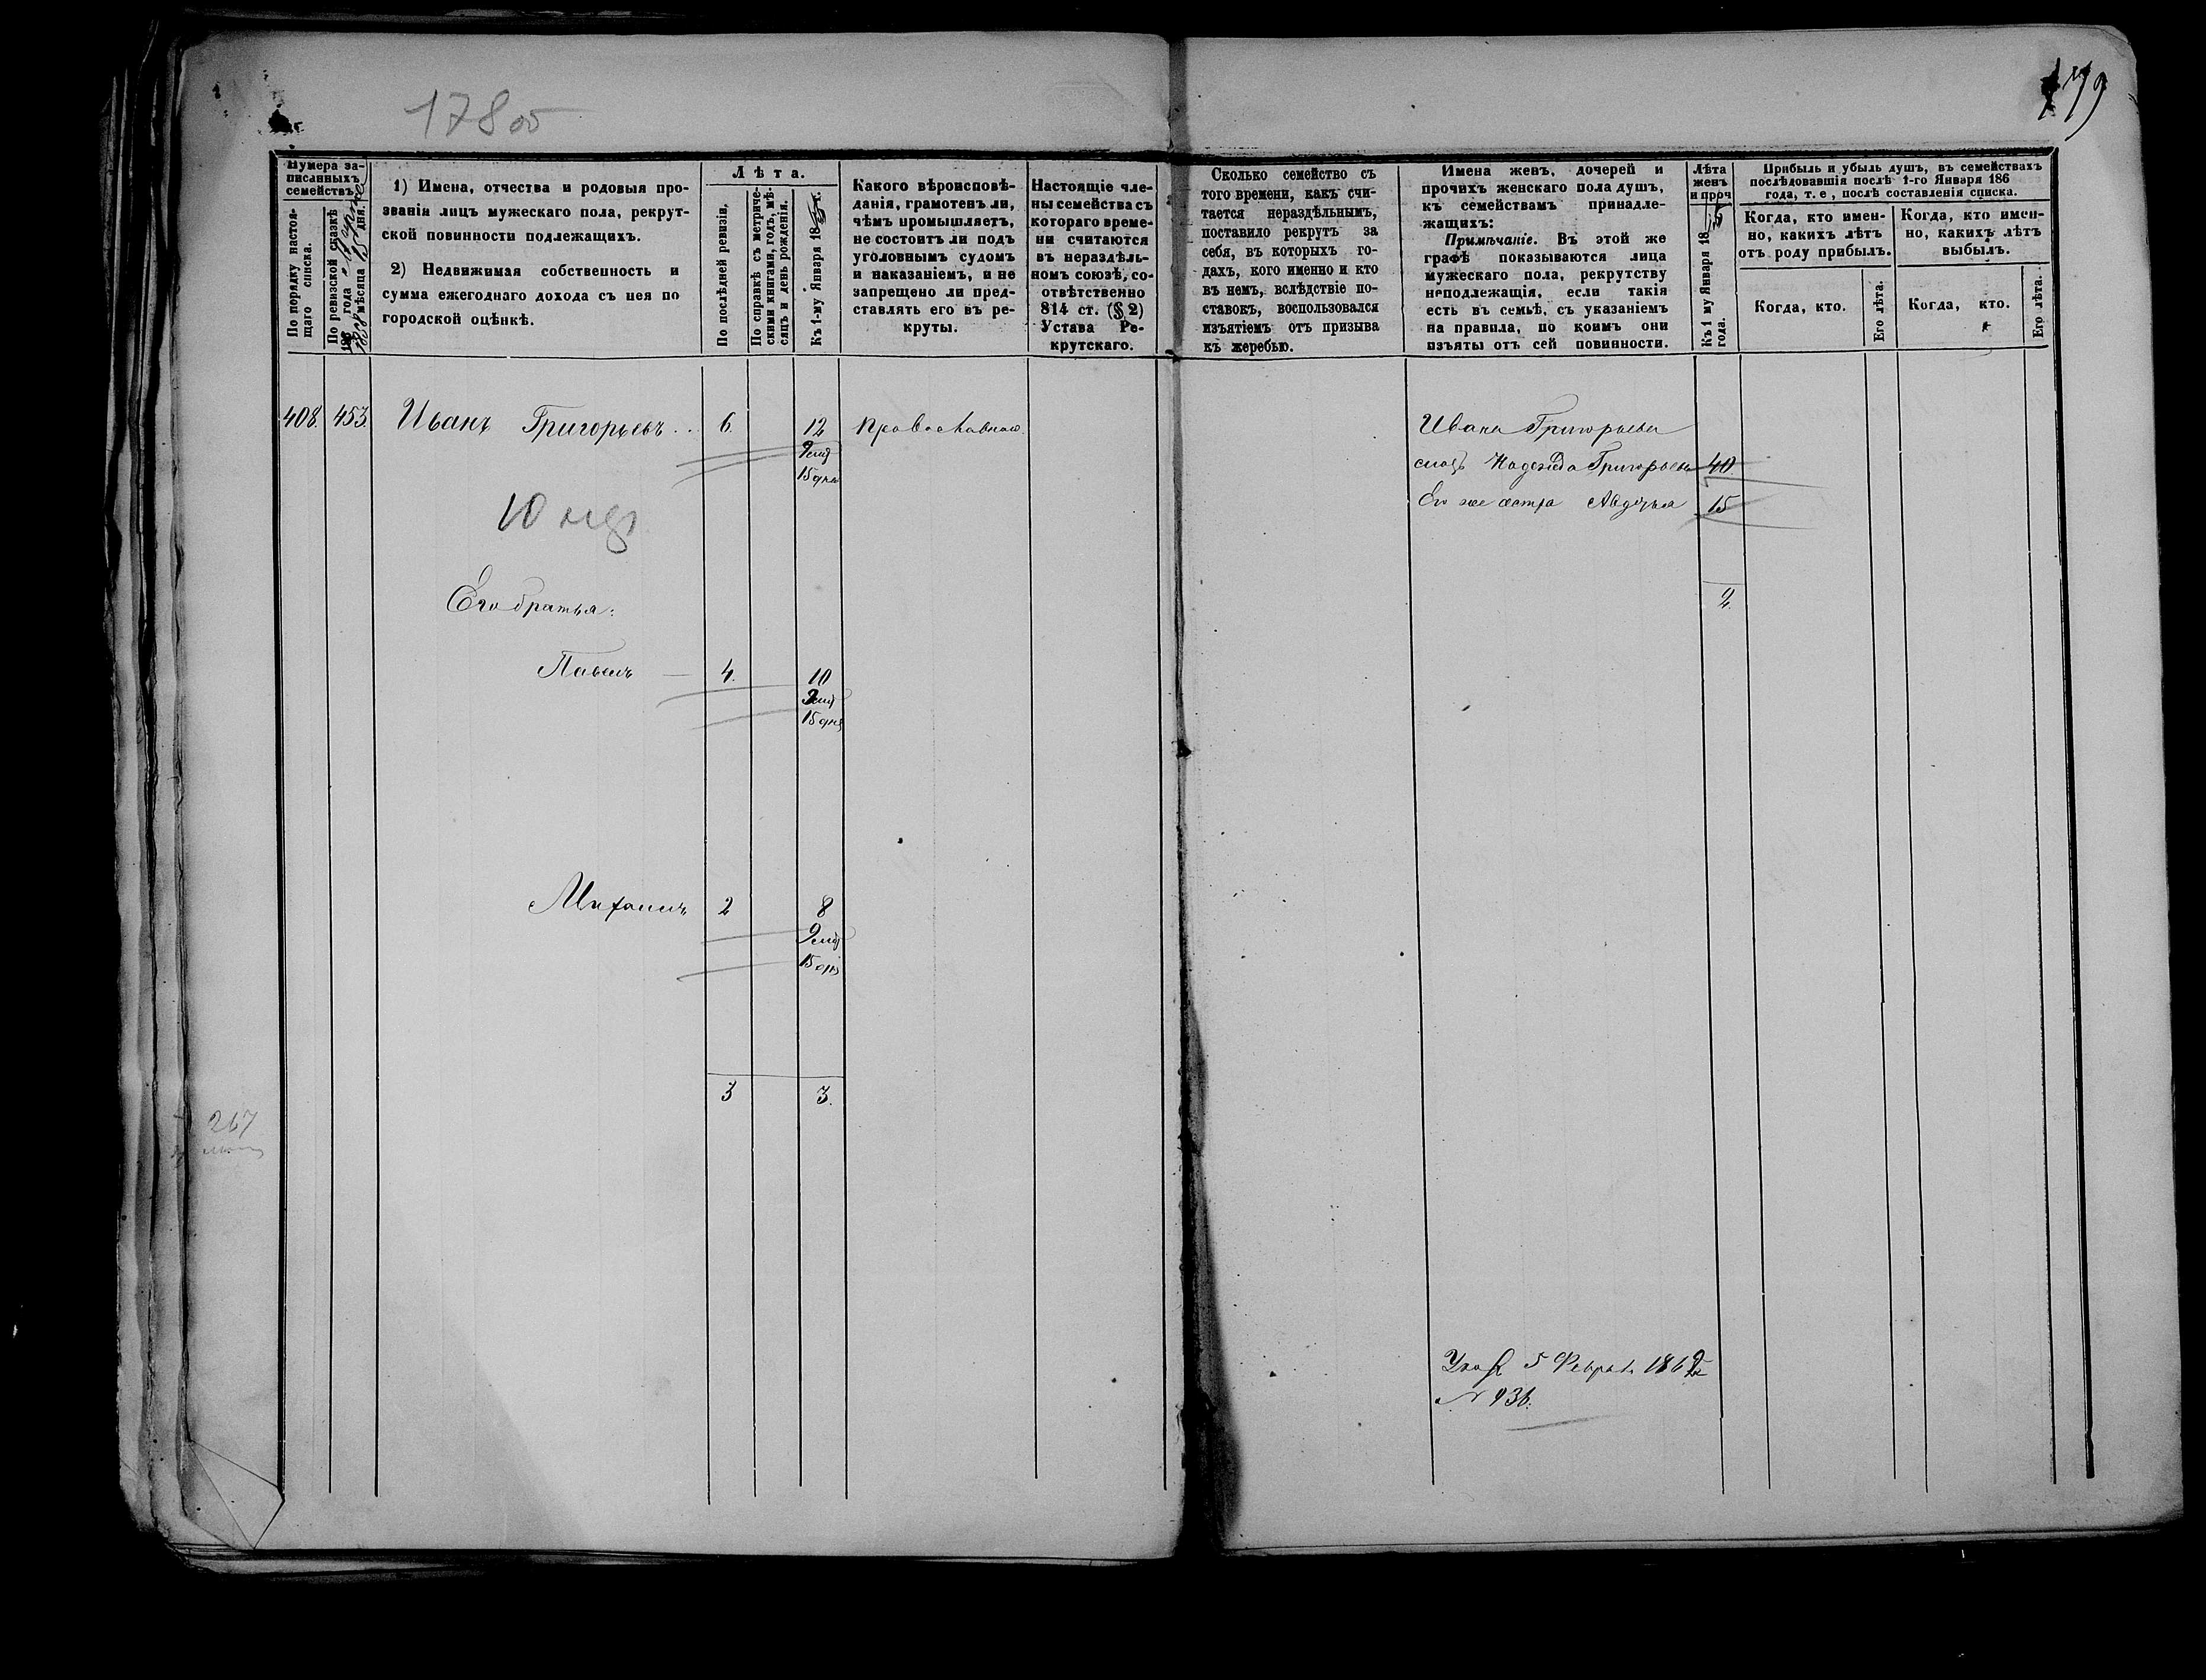 178об
179
Нумера за-
писанныхъ
семействъ.
По порядку настоя-
щаго списка.
По ревизской сказкѣ
года
мѣсяца 15 дня.
1) Имена, отчества и родовыя про-
званія лицъ мужескаго пола, рекрут-
ской повинности подлежащихъ.
2) Недвижимая собственность и
сумма ежегоднаго дохода съ нея по
городской оцѣнкѣ.
Лѣта.
По послѣдней ревизіи.
По справкѣ съ метриче-
скими книгами, годъ, мѣ-
сяцъ и день рожденія.
Къ 1-му Января 18 г.
Какого вѣроисповѣ-
данія, грамотенъ ли,
чѣмъ промышляетъ,
не состоитъ ли подъ
уголовнымъ судомъ
и наказаніемъ, и не
запрещено ли пред-
ставлять его въ ре-
круты.
Настоящіе чле-
ны семейства съ
котораго време-
ни считаются
въ нераздѣль-
номъ союзѣ, со-
отвѣтственно
814 ст. (§ 2)
Устава Ре-
крутскаго.
Сколько семейство съ
того времени, какъ счи-
тается нераздѣльнымъ,
поставило рекрутъ за
себя, въ которыхъ го-
дахъ, кого именно и кто
въ немъ, вслѣдствіе по-
ставокъ, воспользовался
изъятіемъ отъ призыва
къ жеребью.
Имена женъ, дочерей и
прочихъ женскаго пола душъ,
къ семействамъ принадле-
жащихъ:
Примѣчаніе. Въ этой же
графѣ показываются лица
мужескаго пола, рекрутству
неподлежащія, если такія
есть въ семьѣ, съ указаніемъ
на правила, по коимъ они
изъяты отъ сей повинности.
Лѣта
женъ
и проч
Къ 1 му Января 18
года.
Прибыль и убыль душъ, въ семействахъ
послѣдовавшія послѣ 1-го Января 186
года, т. е, послѣ составленія списка.
Когда, кто имен-
но, какихъ лѣтъ
отъ роду прибылъ.
Когда, кто.
Его лѣта.
Когда, кто имен-
но, какихъ лѣтъ
выбылъ.
Когда, кто.
Его лѣта.
408. 453. Иванъ Григорьевъ 6. 12 Православнаго.
15 дня
Его братья:
Павелъ — 4. 10
15 дня
Михаилъ 2 8
15 дня
3 3.
267
Ивана Григорьева
мать Надежда Григорьева 40
Его же сестра Авдотья 15
2.
5 Февраля
№ 936.